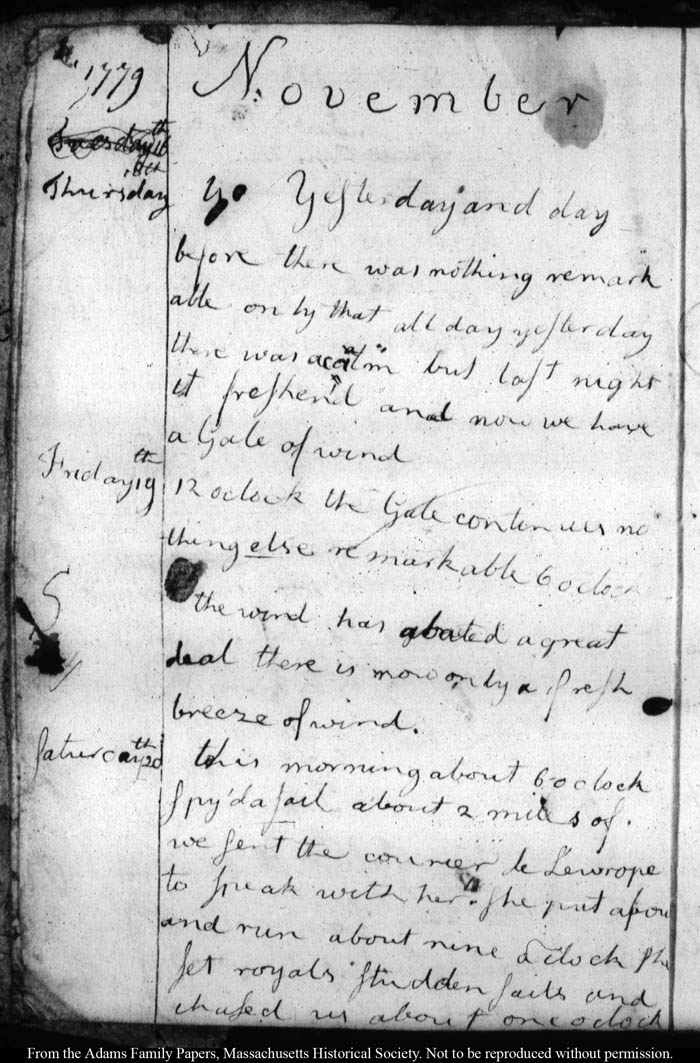 1779 November
Tuesday 16th
Thursday 18th
Yesterday and day
before there was nothing remark
able only that all day yesterday
there was a calm but last night
it freshen'd and now we have
a Gale of wind
Friday 19th 12 oclock the Gale continues no
thing else remarkable 6 oclock
the wind has abated a great
deal there is now only a fresh
breeze of wind.
Saturday 20th this morning about 6 oclock
spy'd a sail about 2 miles of.
we sent the courier de L'europe
to speak with her. she put abou
and run about nine oclock she
set royals studden sails and
chased us about oneoclock
From the Adams Family Papers, Massachusetts Historical Society. Not to be reproduced without permission.